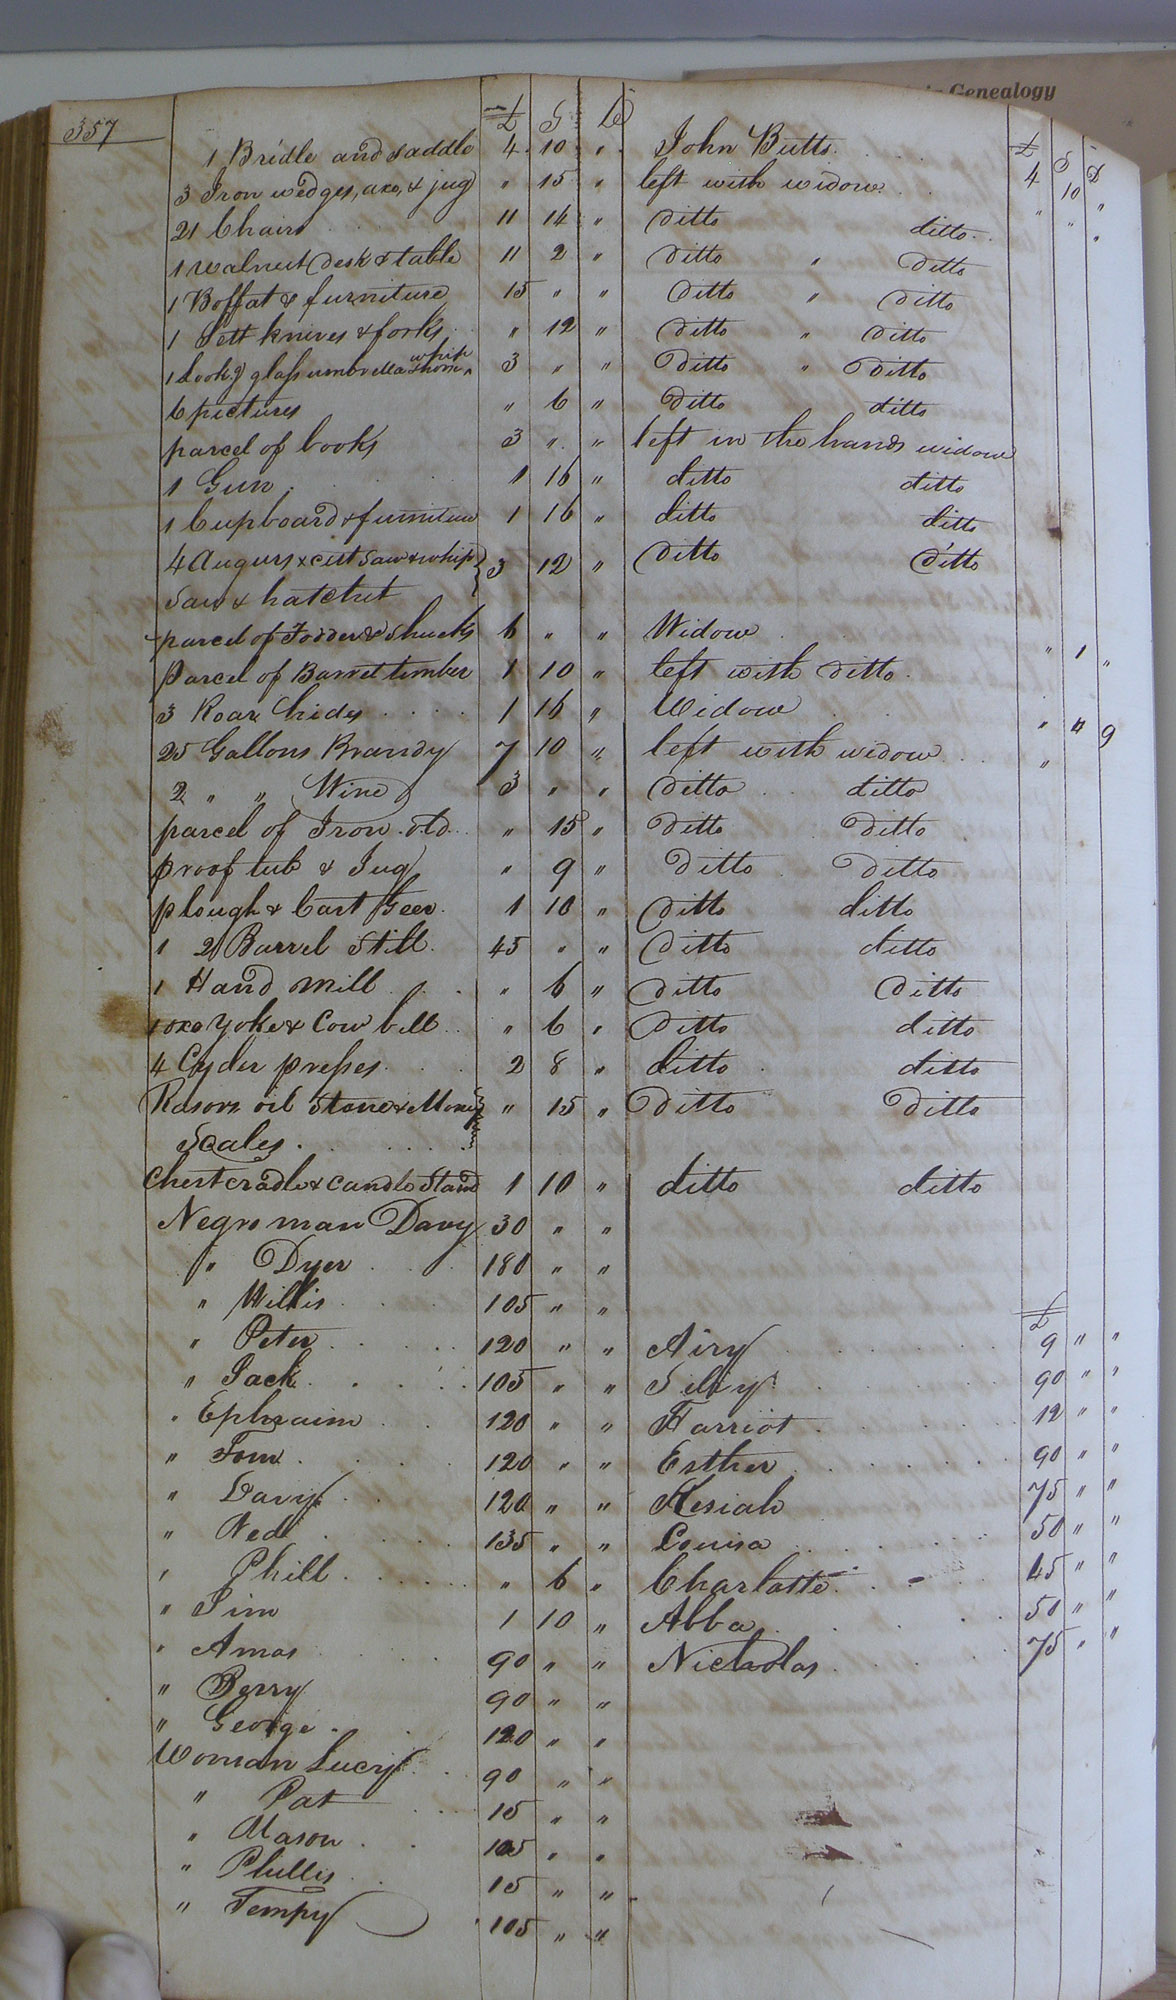 Genealogy
357
£ S D
£ S D
1 Bridle and Saddle 4 10 " John Butts 4 10 "
3 Iron wedges, axe, & jug " 15 " left with widow " " "
21 Chairs 11 14 " ditto ditto
1 walnut Desk & table 11 2 " ditto " ditto
1 Boffat & furniture 15 " " ditto " ditto
1 Sett knives & forks " 12 " ditto " ditto
1 Look.g glass umbrella whip & horn 3 " " ditto " ditto
6 pictures " 6 " ditto ditto
parcel of books 3 " " left in the hands widow
1 Gun 1 16 " ditto ditto
1 Cupboard & furniture 1 16 " ditto ditto
4 Augurs x cut saw & whip } 3 12 " ditto ditto
Saw & hatchet
parcel of Fodder & Shucks 6 " " Widow " 1 "
Parcel of Barrel timber 1 10 " left with ditto
3 Roar hides 1 16 " Widow " " 9
25 Gallons Brandy 7 10 " left with widow "
2 " " Wine 3 " " ditto ditto
parcel of Iron old " 15 " ditto ditto
proof tub & Jug " 9 " ditto ditto
plough & Cart Geer 1 10 " ditto ditto
1 2 Barrel Still 45 " " ditto ditto
1 Hand mill " 6 " ditto ditto
1 oxe yoke & Cow bell " 6 " ditto ditto
4 Cyder presses 2 8 " ditto ditto
Rasors oil Stone & Money } " 15 " ditto ditto
Scales
Chest cradle & candle Stand 1 10 " ditto ditto
Negro man Davy 30 " "
" Dyer 180 " "
" Willis 105 " " £
" Peter 120 " " Airy 9 " "
" Jack 105 " " Silvy 90 " "
" Ephraim 120 " " Harriot 12 " "
" Tom 120 " " Esther 90 " "
" Davy 120 " " Kesiah 75 " "
" Ned 135 " " Louisa 50 " "
" Phill " 6 " Charlotte 45 " "
" Jim 1 10 " Abba 50 " "
" Amos 90 " " Nicholas 75 " "
" Berry 90 " "
" George 120 " "
Woman Lucy 90 " "
" Pat 15 " "
" Mason 105 " "
" Phillis 15 " "
" Tempy 105 " "